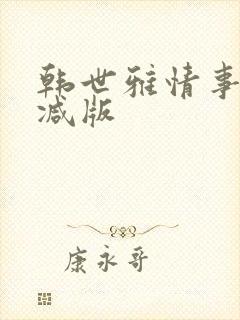 韩世雅情事
减版
康永哥